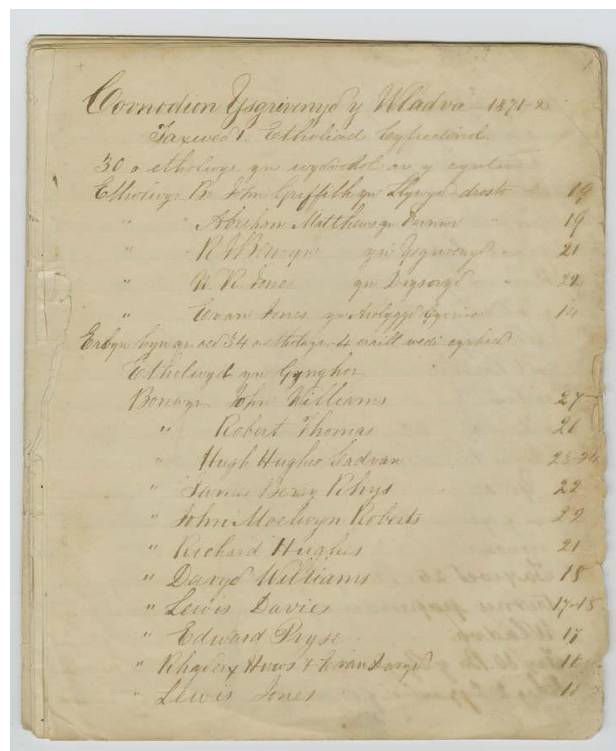 Covnodion Ysgrivenyd y Wladva 1871-2
Taxwed 1. Etholiad Cyfredinol.
30 o etholwyr yn wydvodol ar y cyntav
Etholwyd Br. John Griffith yn Llywyd drosto 19
" " Abraham Matthews yn Varnwr " 19
" yn Ysgrivenyd " 21
" yn Drysoryd " 22
" Evan Jones yn 14
Erbyn hyn yr oed 34 o etholwyr 4 eraill wedi cyrhaed
Etholwyd yn Gynghor
Bonwyr John Williams 27
" Robert Thomas 26
" Hugh Hughes Cadvan 23-24
" James Berry Rhys 22
" John Moelwyn Roberts 22
" Richard Hughes 21
" Davyd Williams 18
" Lewis Davies 17-18
" Edward Pryse 17
" Huws & Evan Davyd 16
" Lewis Jones